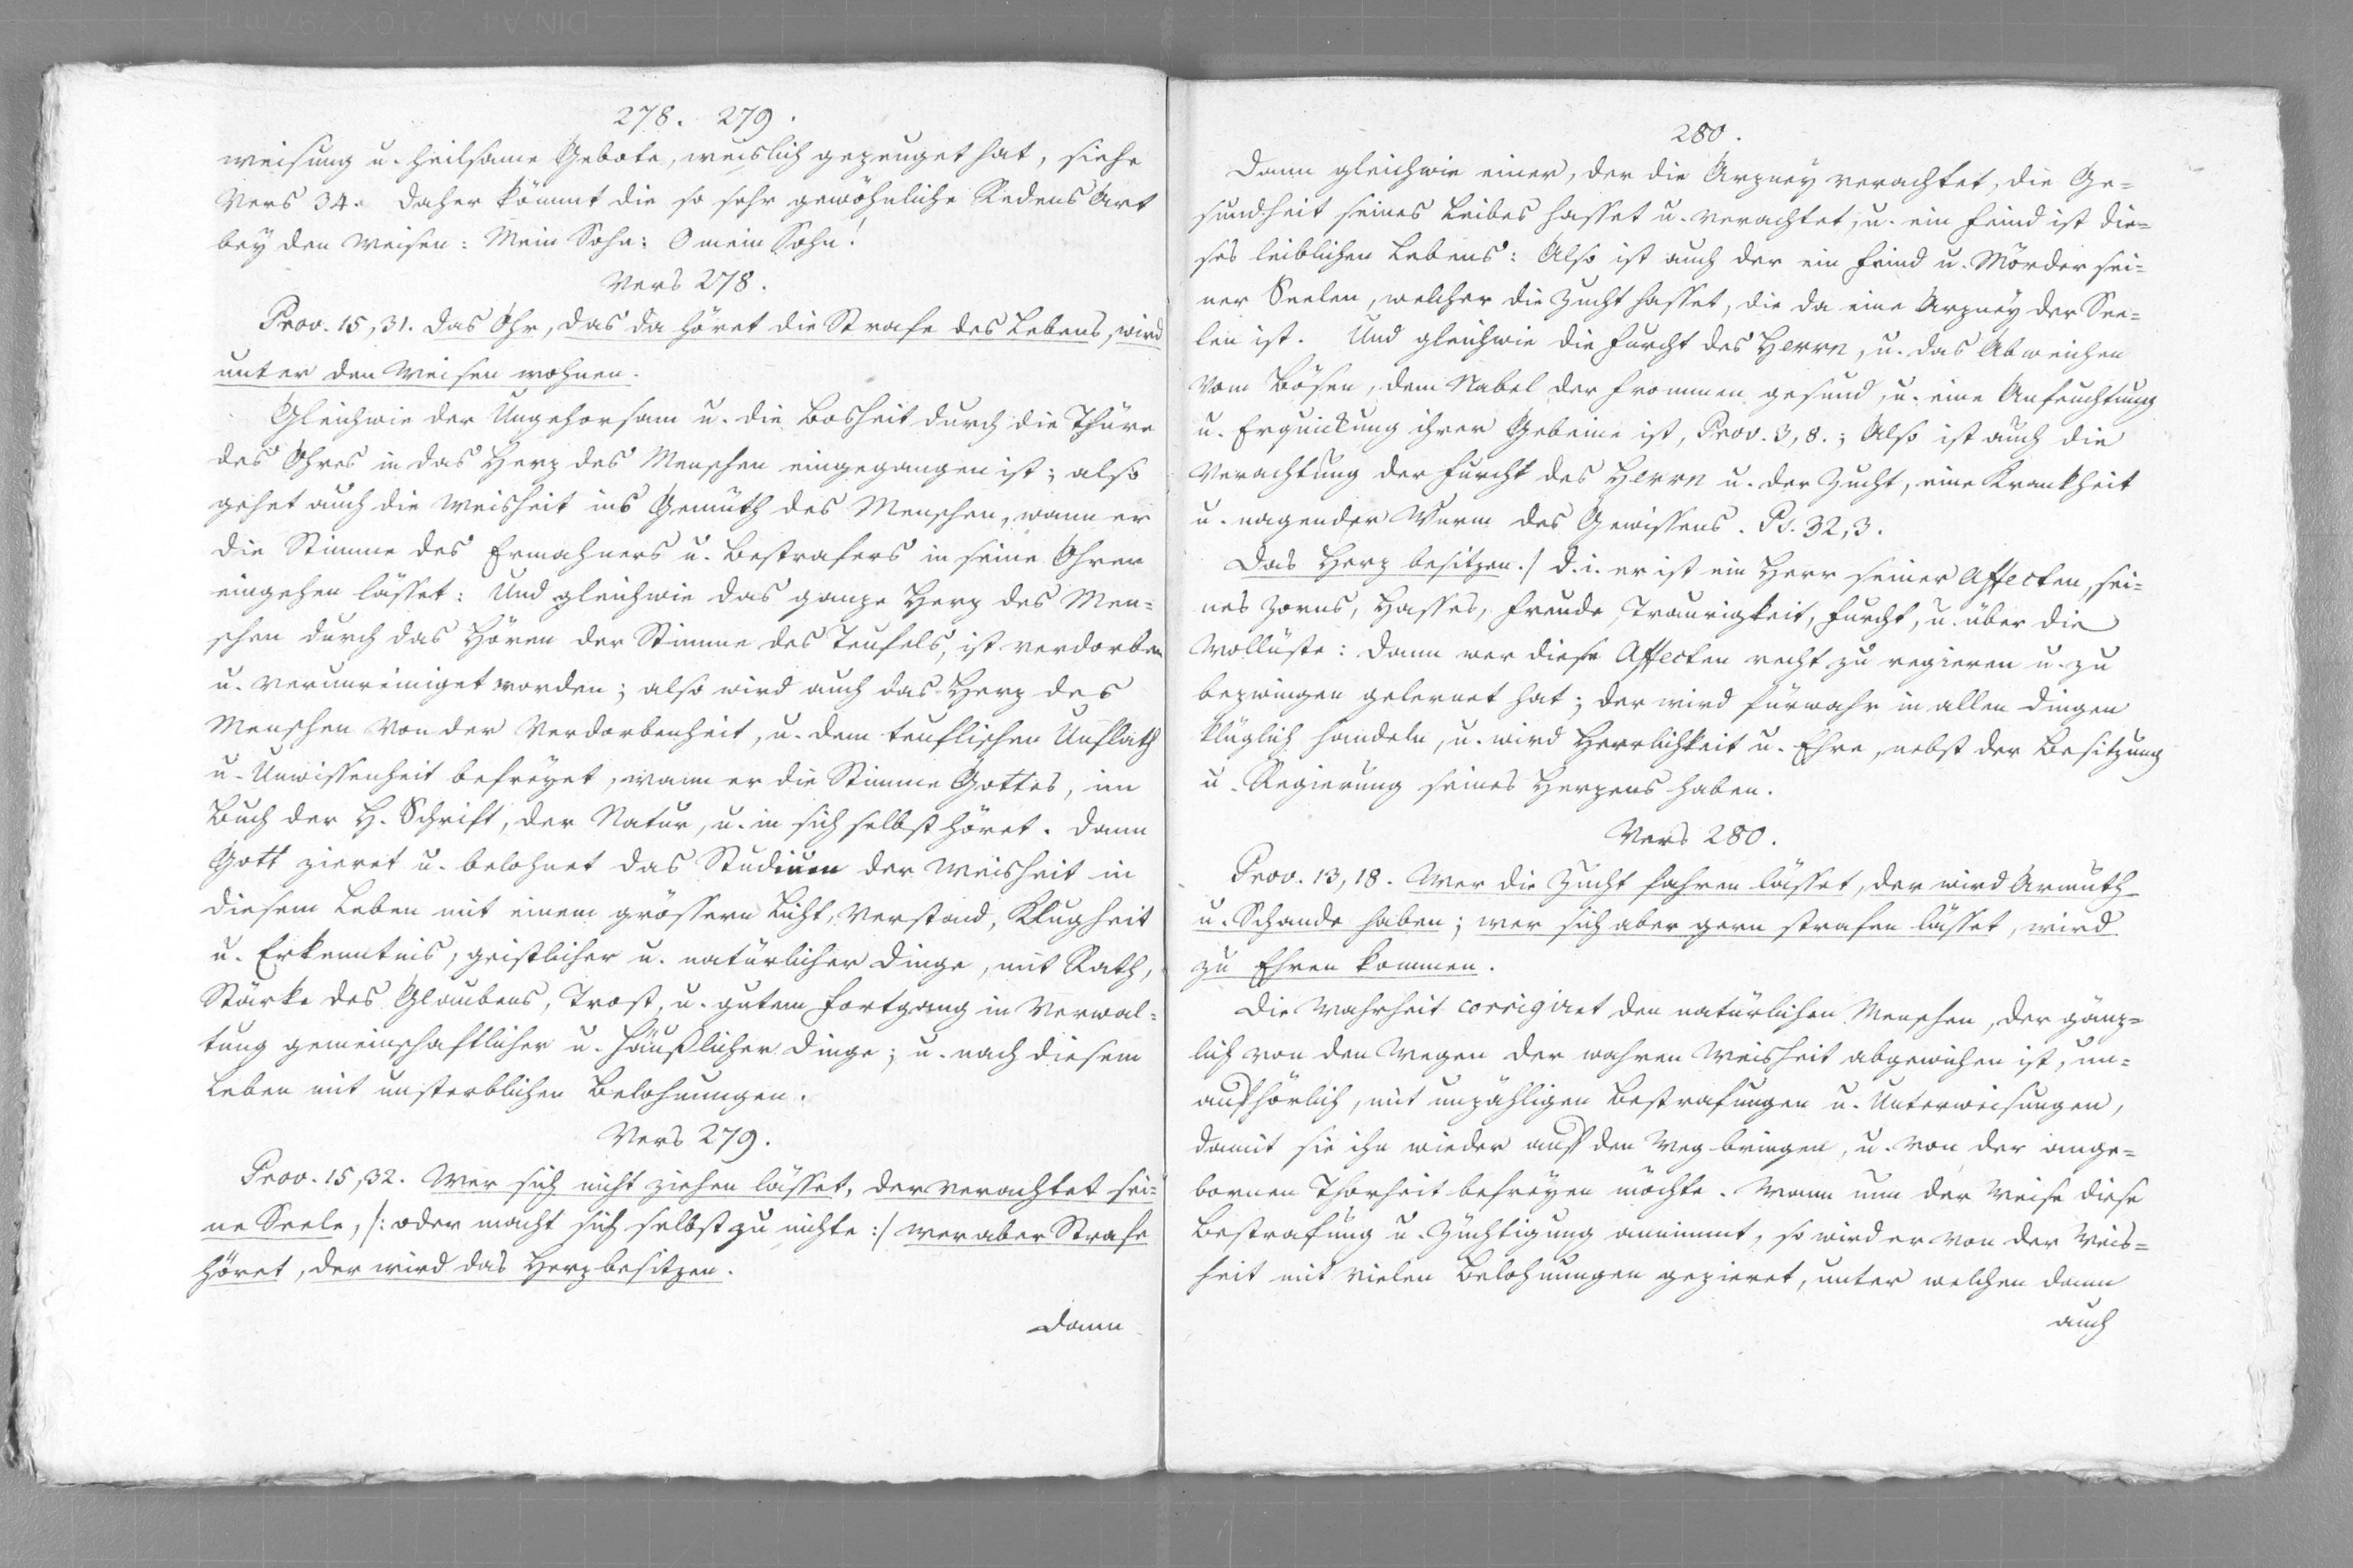 278. 279.
weisung u. heilsame Gebote, weislich gezeuget hat, siehe
Vers 34. Daher kömmt die so sehr gewöhnliche Redens Art
bey den Weisen: Mein Sohn: O mein Sohn!
Vers 278.
Prov. 15, 31. Das Ohr, das da höret die Strafe des Lebens, wird
unter den Weisen wohnen.
Gleichwie der Ungehorsam u. die Bosheit durch die Thüre
des Ohres in das Herz des Menschen eingegangen ist; also
gehet auch die Weisheit ins Gemüth des Menschen, wann er
die Stimme des Ermahners u. Bestrafers in seine Ohren
eingehen lässet: Und gleichwie das ganze Herz des Men=
schen durch das Hören der Stimme des Teufels, ist verdorben
u. verunreiniget worden; also wird auch das Herz des
Menschen von der Verdorbenheit, u. dem teuflischen Unflath
u. Unwissenheit befreyet, wann er die Stimme Gottes, im
Buch der H. Schrift, der Natur, u. in sich selbst höret. Dann
Gott zieret u. belohnet das Studium der Weisheit in
diesem Leben mit einem grössern Licht, Verstand, Klugheit
u. Erkenntnis, geistlicher u. natürlicher Dinge, mit Rath,
Stärke des Glaubens, Trost, u. gutem Fortgang in Verwal=
tung gemeinschaftlicher u. häußlicher Dinge; u. nach diesem
Leben mit unsterblichen Belohnungen.
Vers 279.
Prov. 15, 32. Wer sich nicht ziehen lässet, der verachtet sei=
ne Seele, /: oder macht sich selbst zu nichte :/ wer aber Strafe
höret, der wird das Herz besitzen.
Dann
280.
Dann gleichwie einer, der die Arzney verachtet, die Ge=
sundheit seines Leibes hasset u. verachtet, u. ein Feind ist die=
ses leiblichen Lebens: Also ist auch der ein Feind u. Mörder sei=
ner Seelen, welcher die Zucht hasset, die da eine Arzney der See=
len ist. Und gleichwie die Furcht des Herrn, u. das Abweichen
vom Bösen, dem Nabel der Frommen gesund, u. eine Anfeuchtung
u. Erquickung ihrer Gebeine ist, Prov. 3, 8.; Also ist auch die
Verachtung der Furcht des Herrn u. der Zucht, eine Krankheit
u. nagender Wurm des Gewissens. Ps. 32, 3.
Das Herz besitzen./ d. i. er ist ein Herr seiner Affecten, sei=
nes Zorns, Hasses, Freude, Traurigkeit, Furcht, u. über die
Wollüste: Dann wer diese Affecten recht zu regieren u. zu
bezwingen gelernet hat; der wird fürwahr in allen Dingen
klüglich handeln, u. wird Herrlichkeit u. Ehre, nebst der Besitzung
u. Regierung seines Herzens haben.
Vers 280.
Prov. 13, 18. Wer die Zucht fahren lässet, der wird Armuth
u. Schande haben; wer sich aber gern strafen lässet, wird
zu Ehren kommen.
Die Wahrheit corrigiret den natürlichen Menschen, der gänz=
lich von den Wegen der wahren Weisheit abgewichen ist, un=
aufhörlich, mit unzähligen Bestrafungen u. Unterweisungen,
damit sie ihn wieder auf den Weg bringen, u. von der ange=
bornen Thorheit befreyen möchte. Wann nun der Weise diese
Bestrafung u. Züchtigung annimmt, so wird er von der Weis=
heit mit vielen Belohnungen gezieret, unter welchen dann
auch